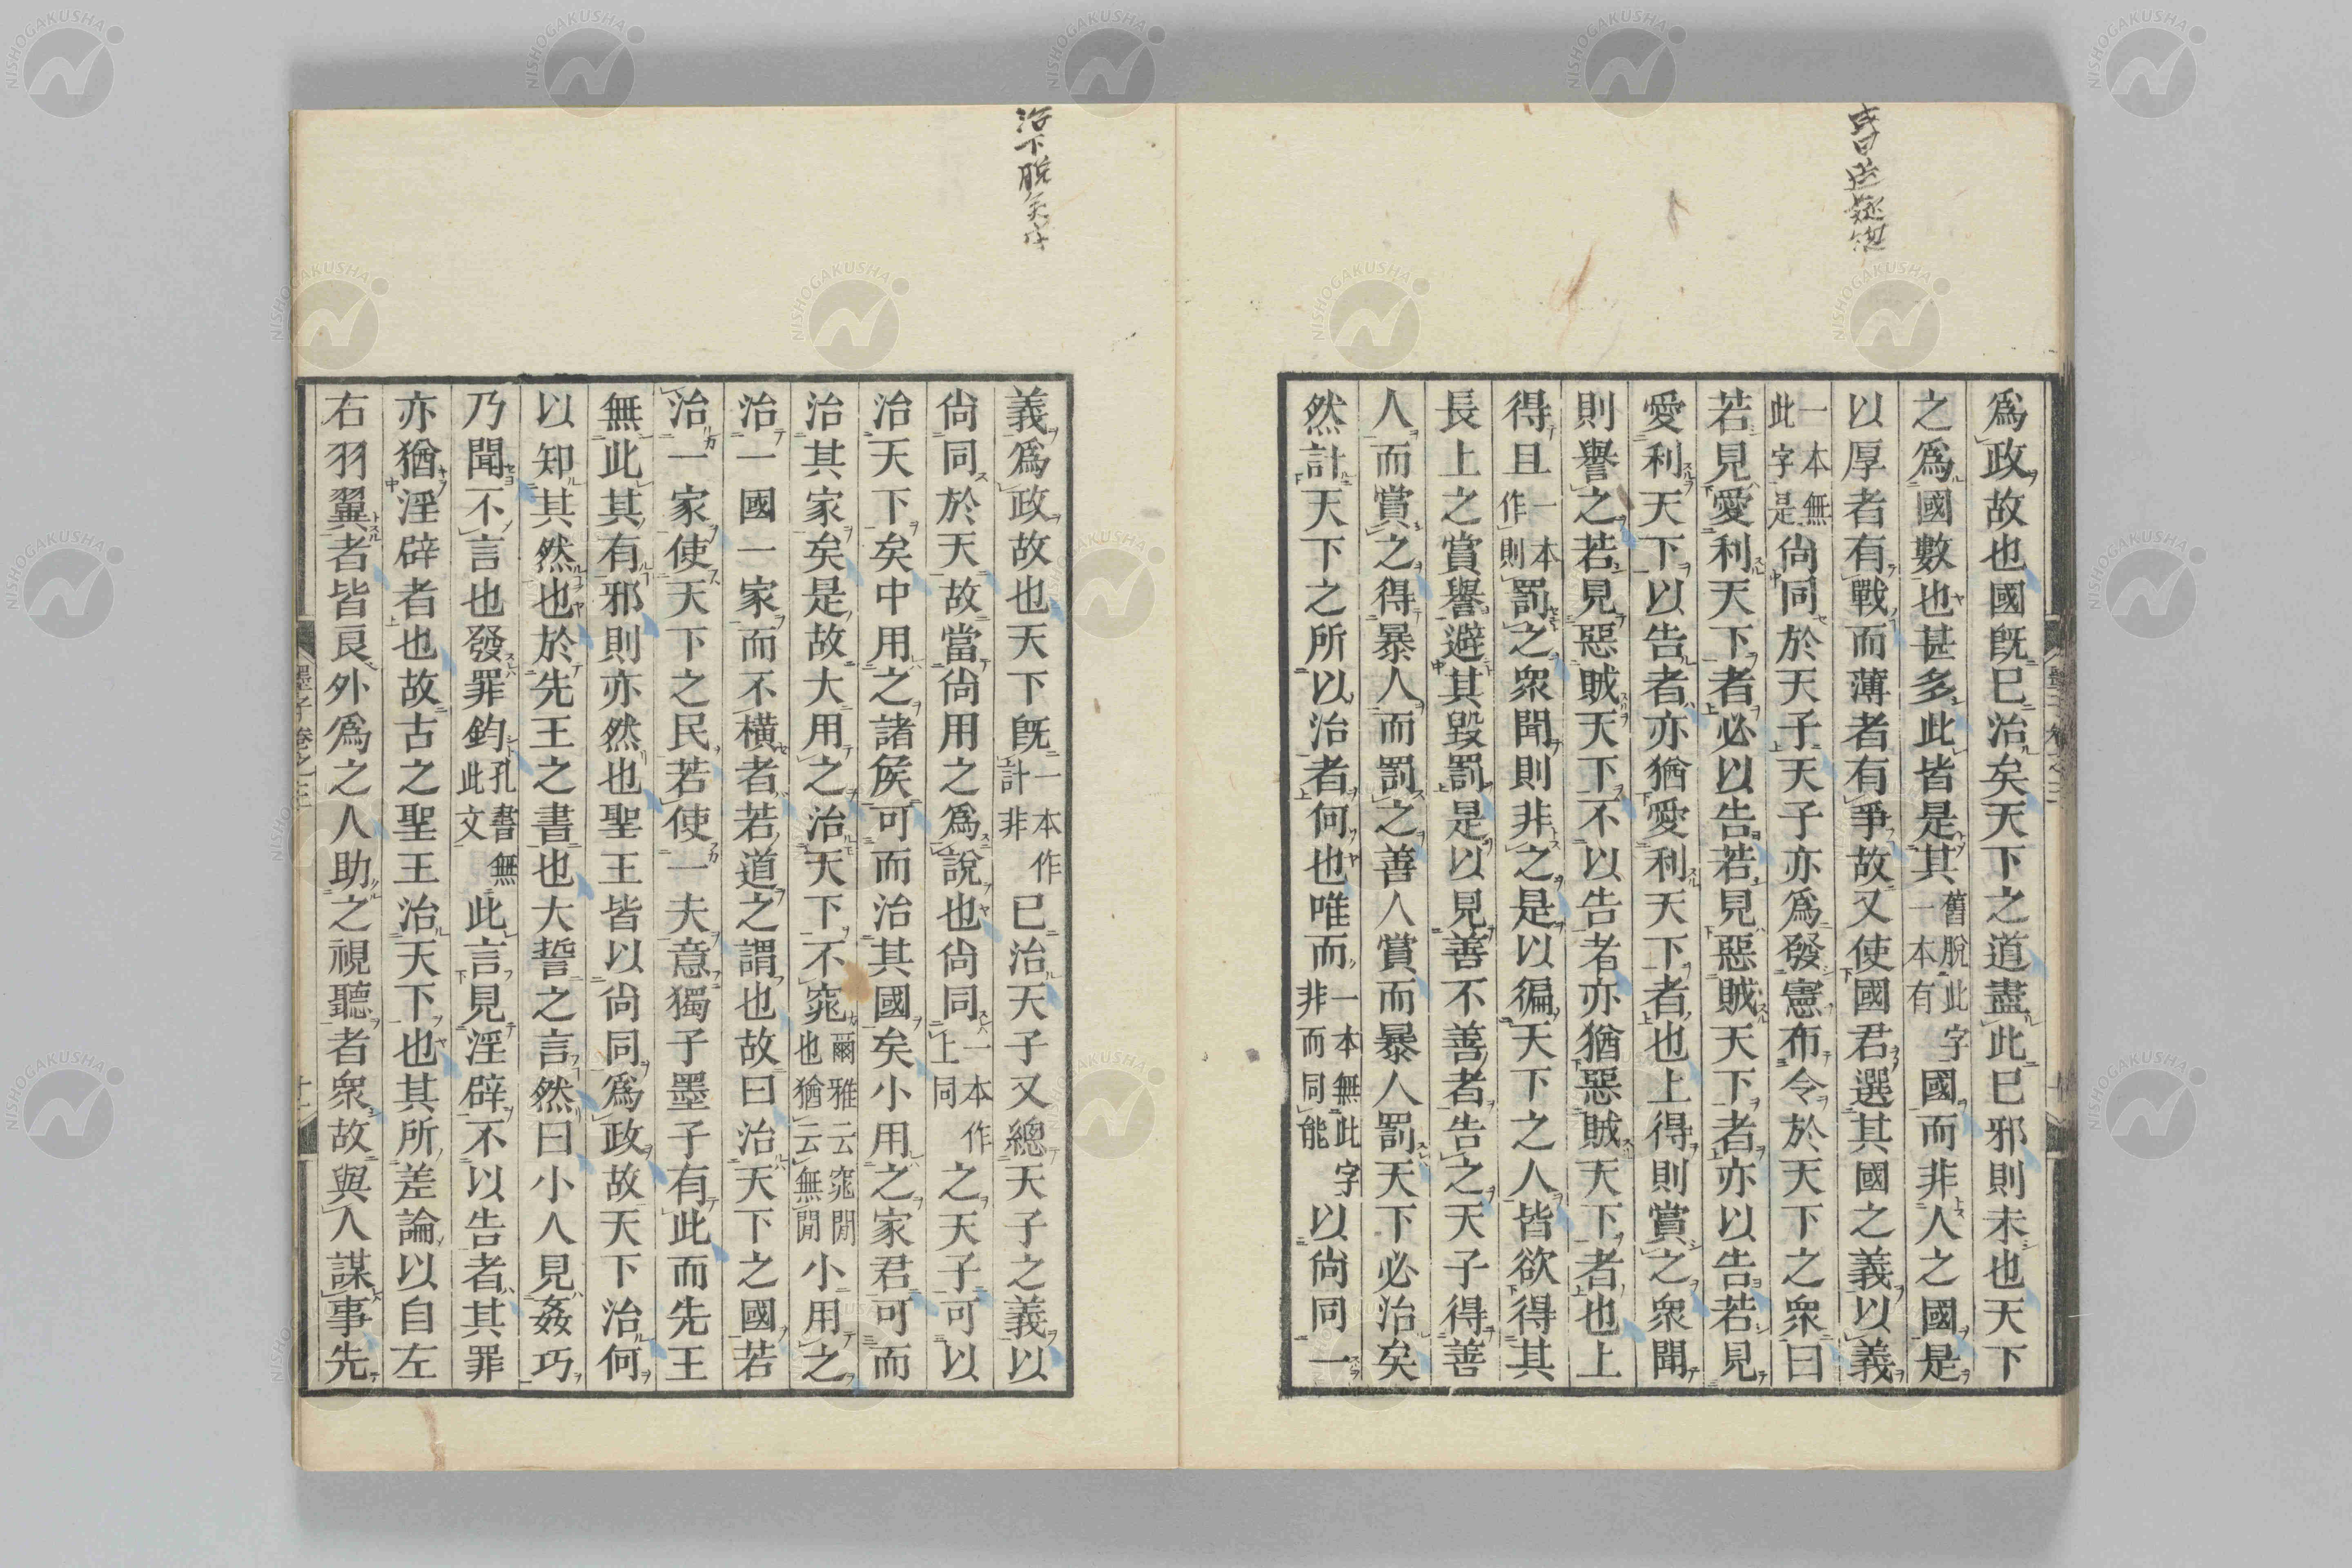 爲政故也國既已治矣天下之道盡此已邪則未也天下
之爲國數也甚多此皆是其舊脫此字一本有國而非人之國是
以厚者有戰而薄者有爭故又使國君選其國之義以義
一本無此字是尙同於天子天子亦爲發憲布令於天下之衆曰
若見愛利天下者必以告若見惡賊天下者亦以告若見
愛利天下以告者亦猶愛利天下者也上得則賞之衆聞
則譽之若見惡賊天下不以告者亦猶惡賊天下者也上
得且一本作則罰之衆聞則非之是以徧天下之人皆欲得其
長上之賞譽避其毀罰是以見善不善者告之天子得善
人而賞之得暴人而罰之善人賞而暴人罰天下必治矣
然計天下之所以治者何也唯而一本無此字非而同能以尙同一
治下脫矣字
義爲政故也天下既一本作計非已治天子又總天子之義以
尙同於天故當尙用之爲說也尙同一本作上同之天子可以
治天下矣中用之諸矦可而治其國矣小用之家君可而
治其家矣是故大用之治天下不窕爾雅云窕閒也猶云無閒小用之
治一國一家而不橫者若道之謂也故曰治天下之國若
治一家使天下之民若使一夫意獨子墨子有此而先王
無此其有邪則亦然也聖王皆以尙同爲政故天下治何
以知其然也於先王之書也大誓之言然曰小人見姦巧
乃聞不言也發罪鈞孔書無此文此言見淫辟不以告者其罪
亦猶淫辟者也故古之聖王治天下也其所差論以自左
右羽翼者皆良外爲之人助之視聽者衆故與人謀事先
墨子卷之三
十一